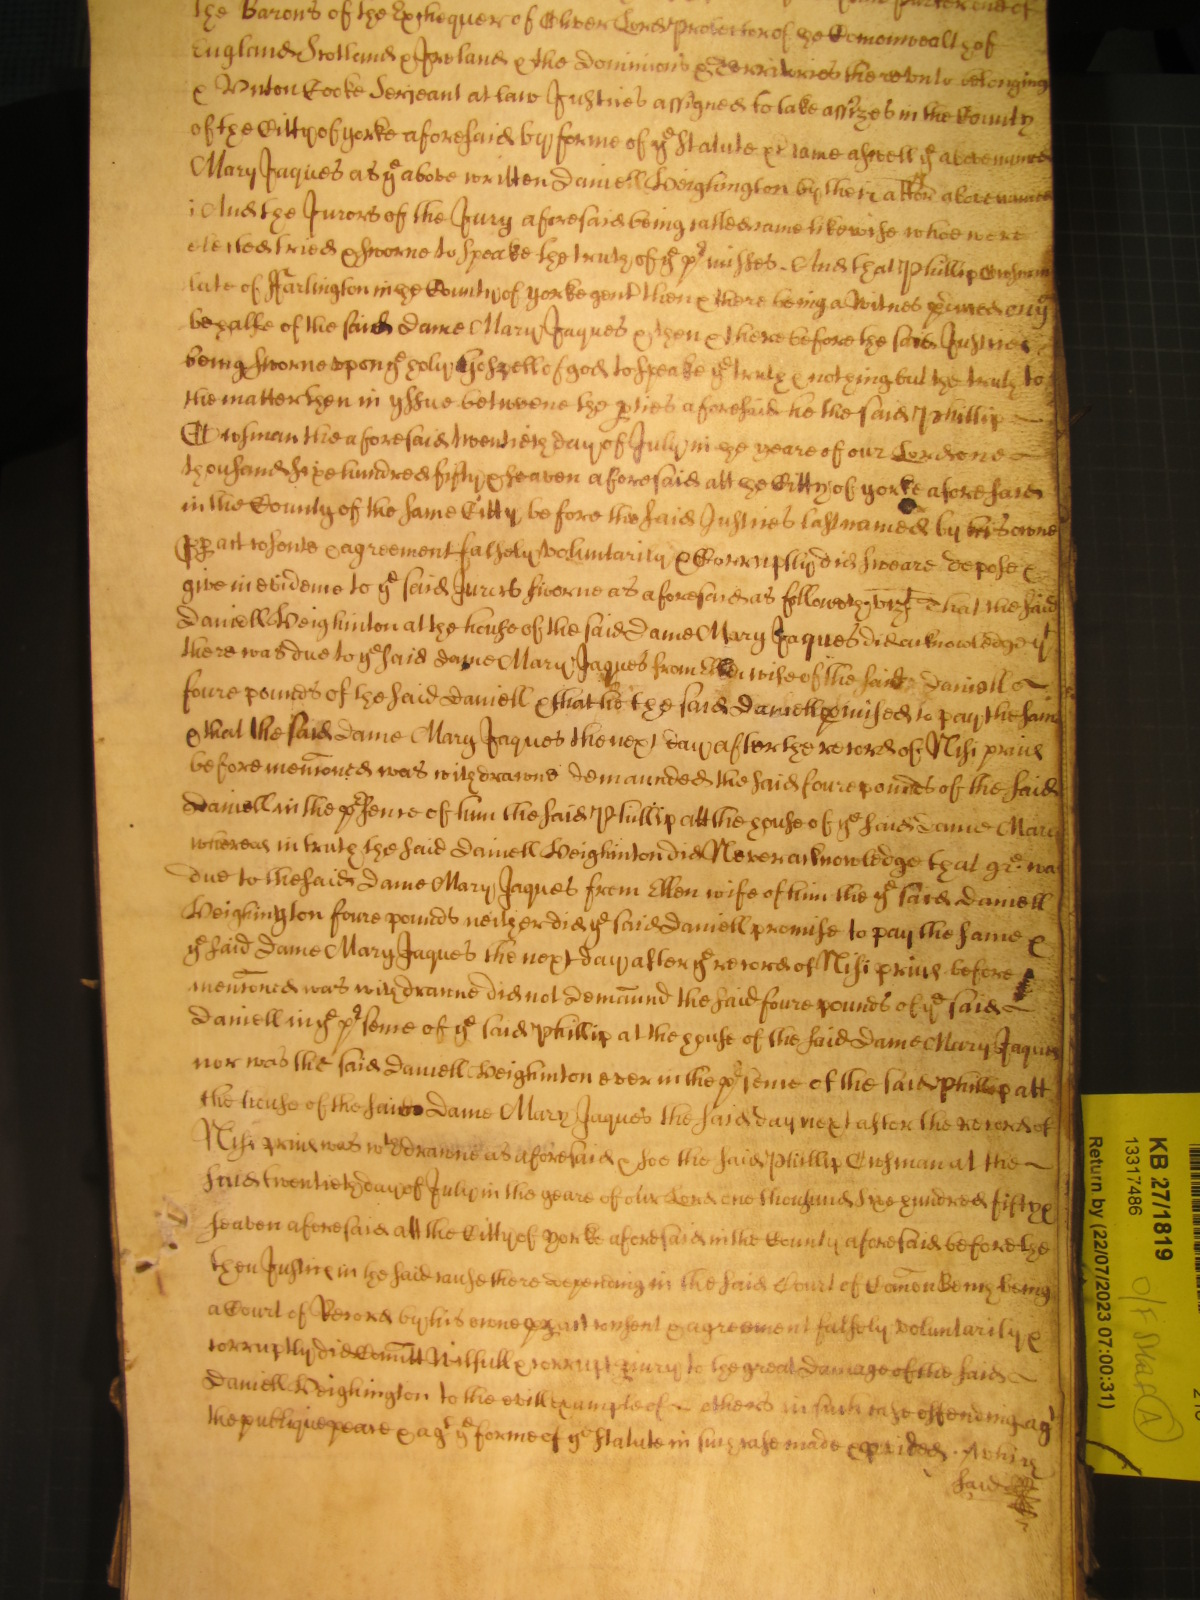 the Barons of the Exchequer of Oliver Lord Protector of the Comonwealth of
England Scotland & Ireland & the dominions & Territories thereunto belonging
& Unton Cooke Serjeant at law Justices assigned to take assizes in the County
of the Citty of yorke aforesaid by forme of ye Statute &c came aswell ye abovenamed
Mary Jaques as ye above written Daniell Heighington by their attor abovenamed
And the Jurors of the Jury aforesaid being called came likewise whoe were
elected tried & sworne to speake the truth of ye pr misses. And that Phillip
late of Harlington in the County of yorke gent then & there being a Witnes pduced on ye
behalfe of the said Dame Mary Jaques & then & there before the said Justices
being sworne upon ye holy Gospell of god to speake ye truth & nothing but the truth to
the matter then in yssue betweene the pties aforesaid he the said Phillip
the aforesaid twentieth day of July in the yeare of our Lord one
thousand sixe hundred fifty & seaven aforesaid att the Citty of yorke aforesaid
in the County of the same Citty before the said Justices last named by his owne
pp act consente & agreement falsely voluntarily & Corruptly did sweare depose &
give in evidence to ye said Jurors sworne as aforesaid as followeth vizt That the said
Daniell Heighinton at the house of the said Dame Mary Jaques did acknowledge yt
there was due to ye said dame Mary Jaques from Ellen wife of the said Daniell
foure pounds of the said Daniell & that he the said Daniell pmised to pay the same
& that the said Dame Mary Jaques the next day after the record of Nisi prius
before menconed was withdrawne demaunded the said foure pounds of the said
Daniell in the pr sence of him the said Phillip att the house of ye said Dame Mary
whereas in truth the said Daniell Heighinton did Never acknowledge that was
due to the said Dame Mary Jaques from Ellen wife of him the ye said Daniell
Heighington foure pounds neither did ye said Daniell promise to pay the same &
ye said Dame Mary Jaques the next day after ye record of Nisi prius before
menconed was withdrawne did not demaund the said foure pounds of ye said
Daniell in ye pr sence of ye said Phillip at the house of the said Dame Mary Jaques
nor was the said Daniell Heighinton ever in the pr sence of the said Phillip att
the house of the said Dame Mary Jaques the said day next after the record of
Nisi prius was wthdrawne as aforesaid & soe the said Phillip at the
said twentieth day of July in the yeare of our Lord one thousand sixe hundred fifty &
seaven aforesaid att the Citty of yorke aforesaid in the County aforesaid before the
then Justices in the said cause there depending in the said Court of Comon Bench being
a Court of Record by his owne pp act consent & agreement falsely voluntarily &
corruptly did Comitt Wilfull & corrupt piury to the great damage of the said
Daniell Heighington to the evill example of others in such case offending agt
the publique peace & agt ye forme of ye Statute in such case made & pvided. which
said
KB 27/1819
13317486
Return by (22/07/2023 07:00:31)